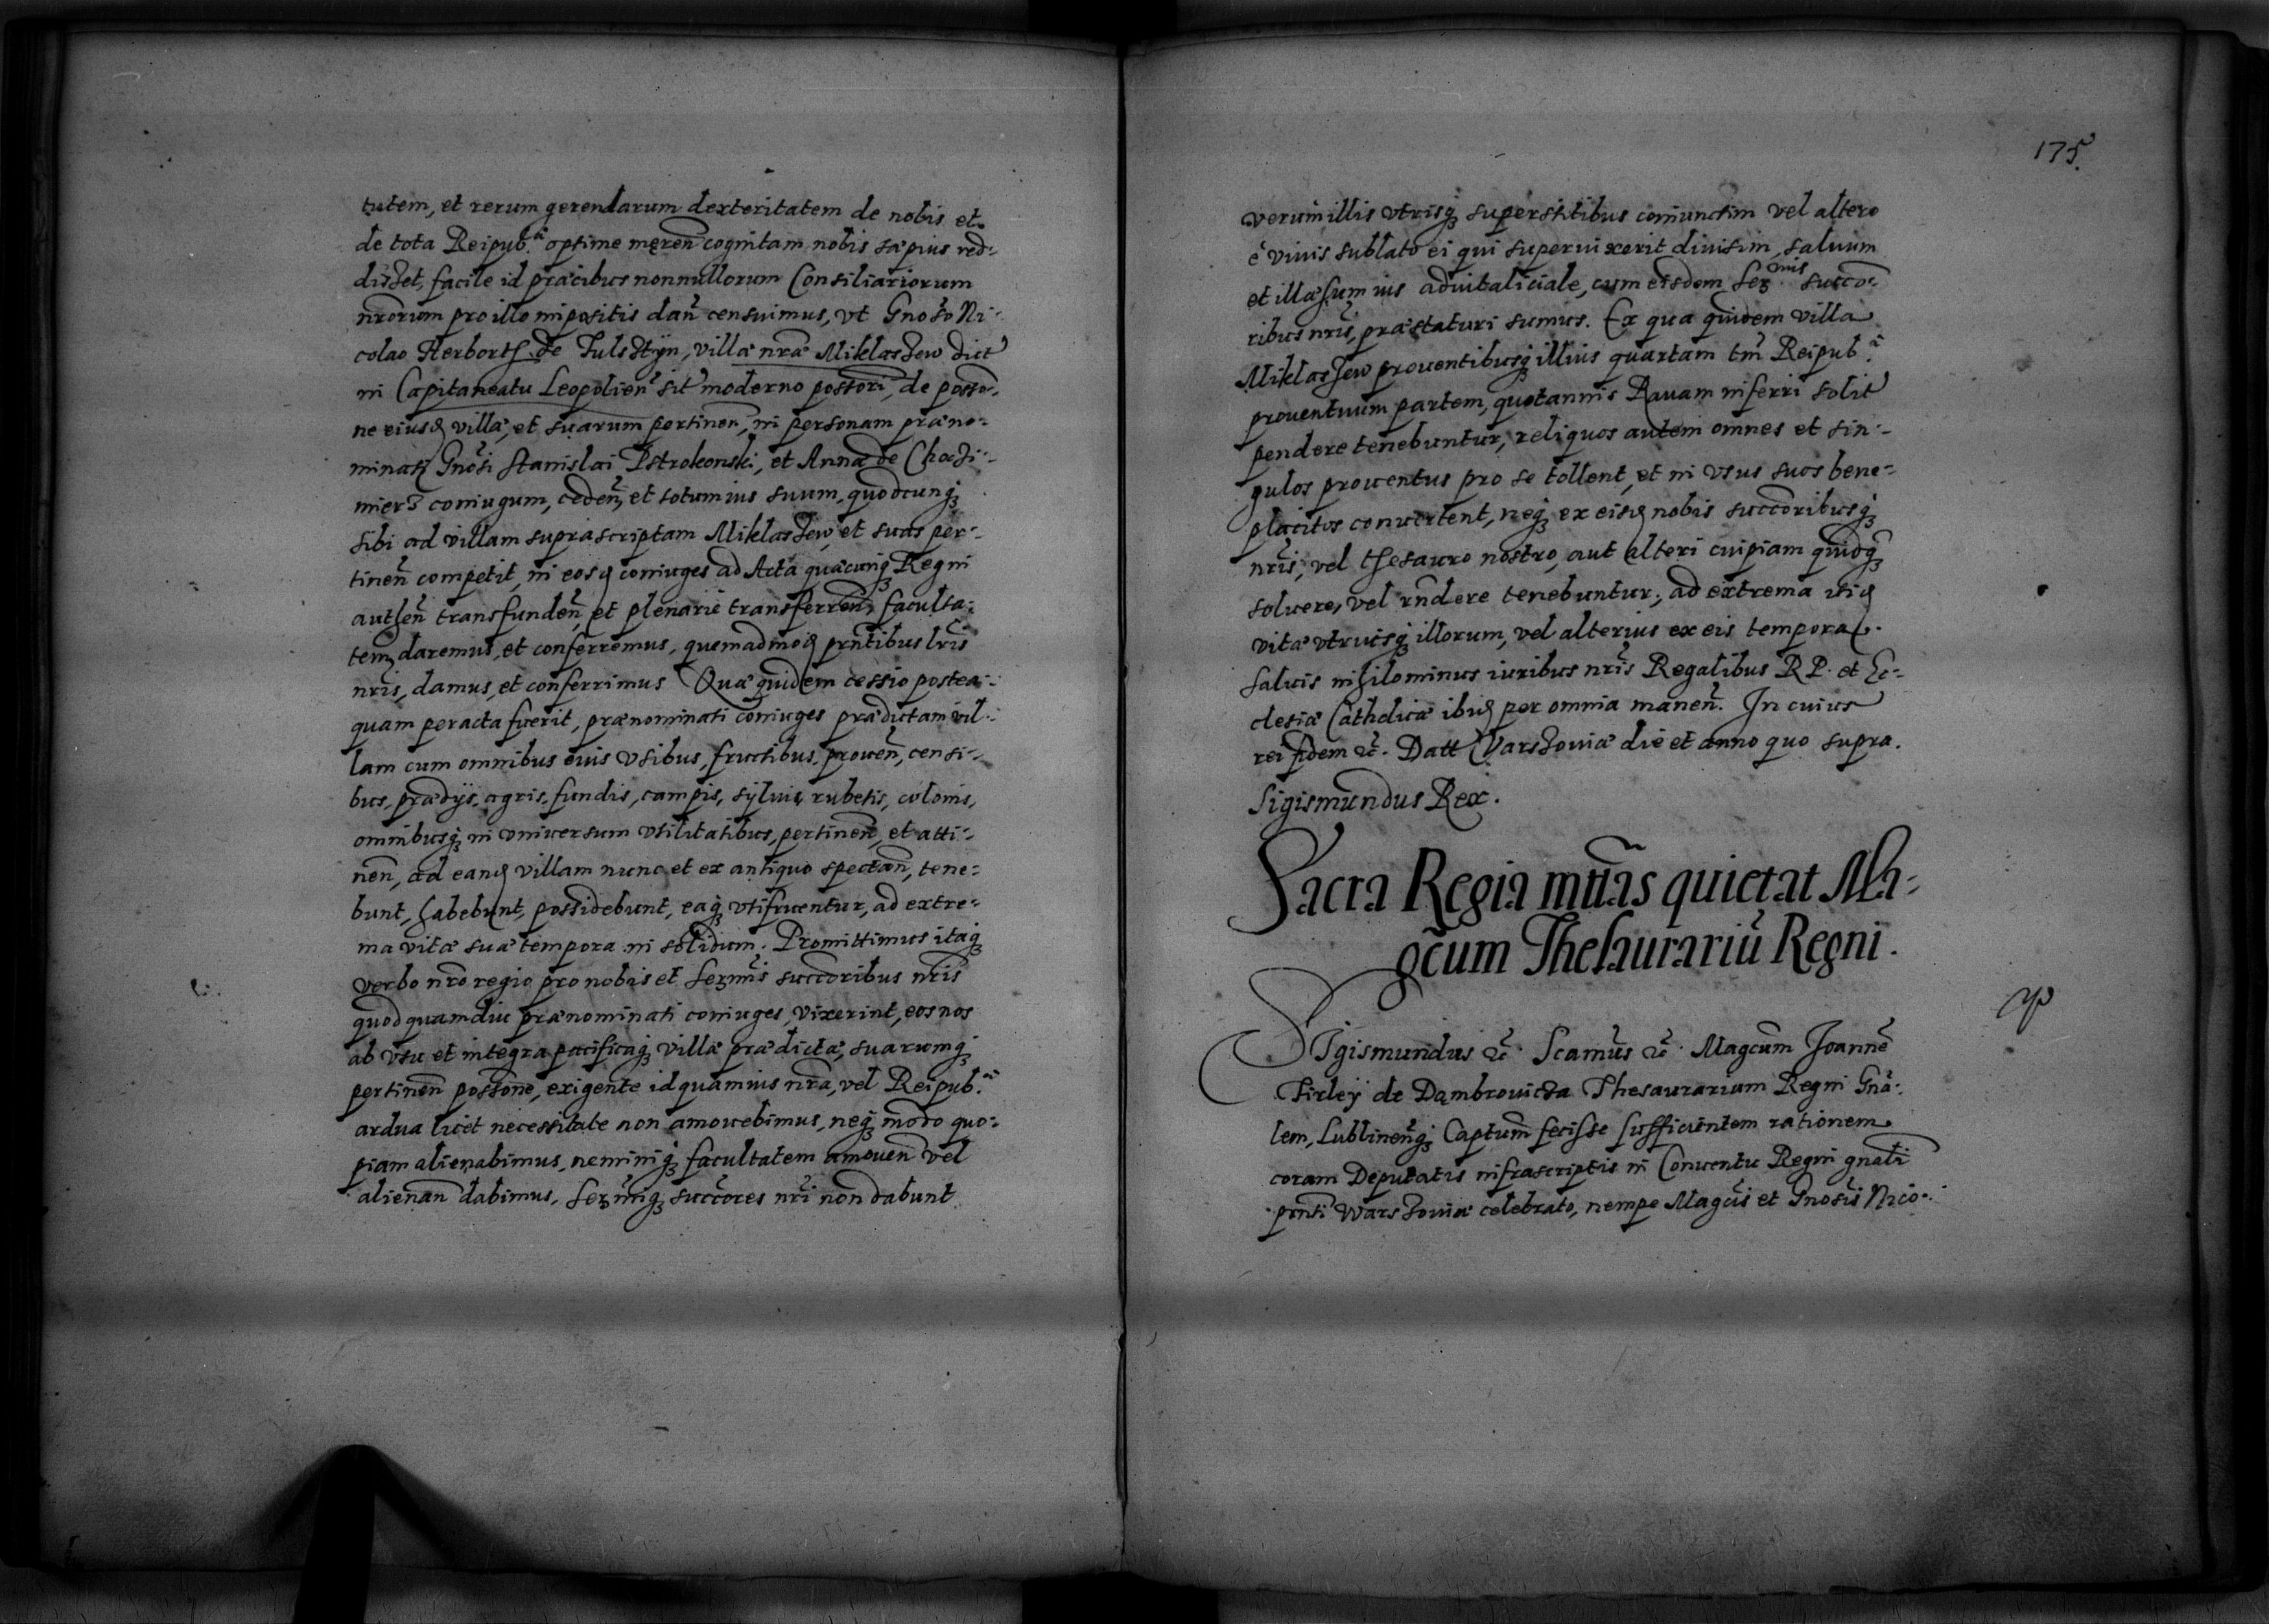 tutem, et rerum gerendarum dexteritatem de nobis et
de tota Reipub.ca optime meren̄ cognitam nobis sæpius red-
disset, facile id præcibus nonnullorum Consiliariorum
nrorum pro illo impositis dan̄ censuimus, vt Gnoso Ni-
colao Herborth de Fulsztyn, villæ nræ Miklaszew dict
in Capitaneatu Leopolien̄ sit̄ moderno possori, de posso-
ne eiusd villæ, et suarum pertinen̄, in personam præno-
minati Gnosi Stanislai Pstrokonski, et Anna de Chodzi-
mierz coniugum, ceden̄, et totum ius suum, quodcunq
sibi ad villam suprascriptam Miklaszew, et suas per-
tinen̄ competit, in eosd coniuges ad Acta quæcunq Regni
authen̄ transfunden̄, et plenarie transferren̄, faculta-
tem daremus, et conferremus, quemadmod prntibus lris
nris, damus, et conferrimus Quæ quidem cessio postea-
quam peracta fuerit, prænominati coniuges prædictam vil-
lam cum omnibus eius vsibus, fructibus, prouen̄, censi-
bus, prædijs, agris, fundis, campis, syluis, rubetis, colonis,
omnibusq in vniuersum vtilitatibus, pertinen̄, et atti-
nen̄, ad eand villam nunc et ex antiquo spectan̄, tene-
bunt, habebunt, possidebunt, eaq vtifruentur, ad extre-
ma vitæ suæ tempora in solidum. Promittimus itaq
verbo nro regio pro nobis et Sermis succoribus nris
quod quamdiu prænominati coniuges vixerint, eos nos
ab vsu et integra pacificaq villæ prædictæ, suarumq
pertinen̄ possone, exigente id quamuis nra, vel Reipub.cæ
ardua licet necessitate non amouebimus, neq modo quo-
piam alienabimus, neminiq facultatem amouen̄ vel
alienan̄ dabimus, Sermiq succores nri non dabunt
175.
verum illis vtrisq superstitibus coniunctim vel altero
è viuis sublato ei qui superuixerit diuisim, saluum
et illæsum ius aduitaliciale, cum eisdem Sermis succo-
ribus nris, præstaturi sumus. Ex qua quidem villa
Miklaszew prouentibusq illius quartam tm Reipub.cæ
prouentuum partem, quotannis Rauam inferri solit
pendere tenebuntur, reliquos autem omnes et sin-
gulos prouentus pro se tollent, et in vsus suos bene-
placitos conuertent, neq ex eisd nobis succoribusq
nris, vel thesauro nostro, aut alteri cuipiam quidq
soluere, vel rndere tenebuntur, ad extrema
vitæ vtriusq illorum, vel alterius ex eis tempora.
Saluis nihilominus iuribus nris Regalibus RP. et Ec-
clesiæ Catholicæ ibid per omnia manen̄. In cuius
rei fidem &c. Datt Varszouiæ die et anno quo supra.
Sigismundus Rex.
Sacra Regia mttas quietat Ma-
gcum Thesaurariū Regni.
Sigismundus &c. Scamus &c. Magcum Joannē
Firley de Dąmbrouicza Thesaurarium Regni Gna-
lem, Lublinenq Captum fecisse sufficientem rationem
coram Deputatis infrascriptis in Conuentu Regni gnali
prnti Warszouiæ celebrato, nempe Magcis et Gnosis Nico-